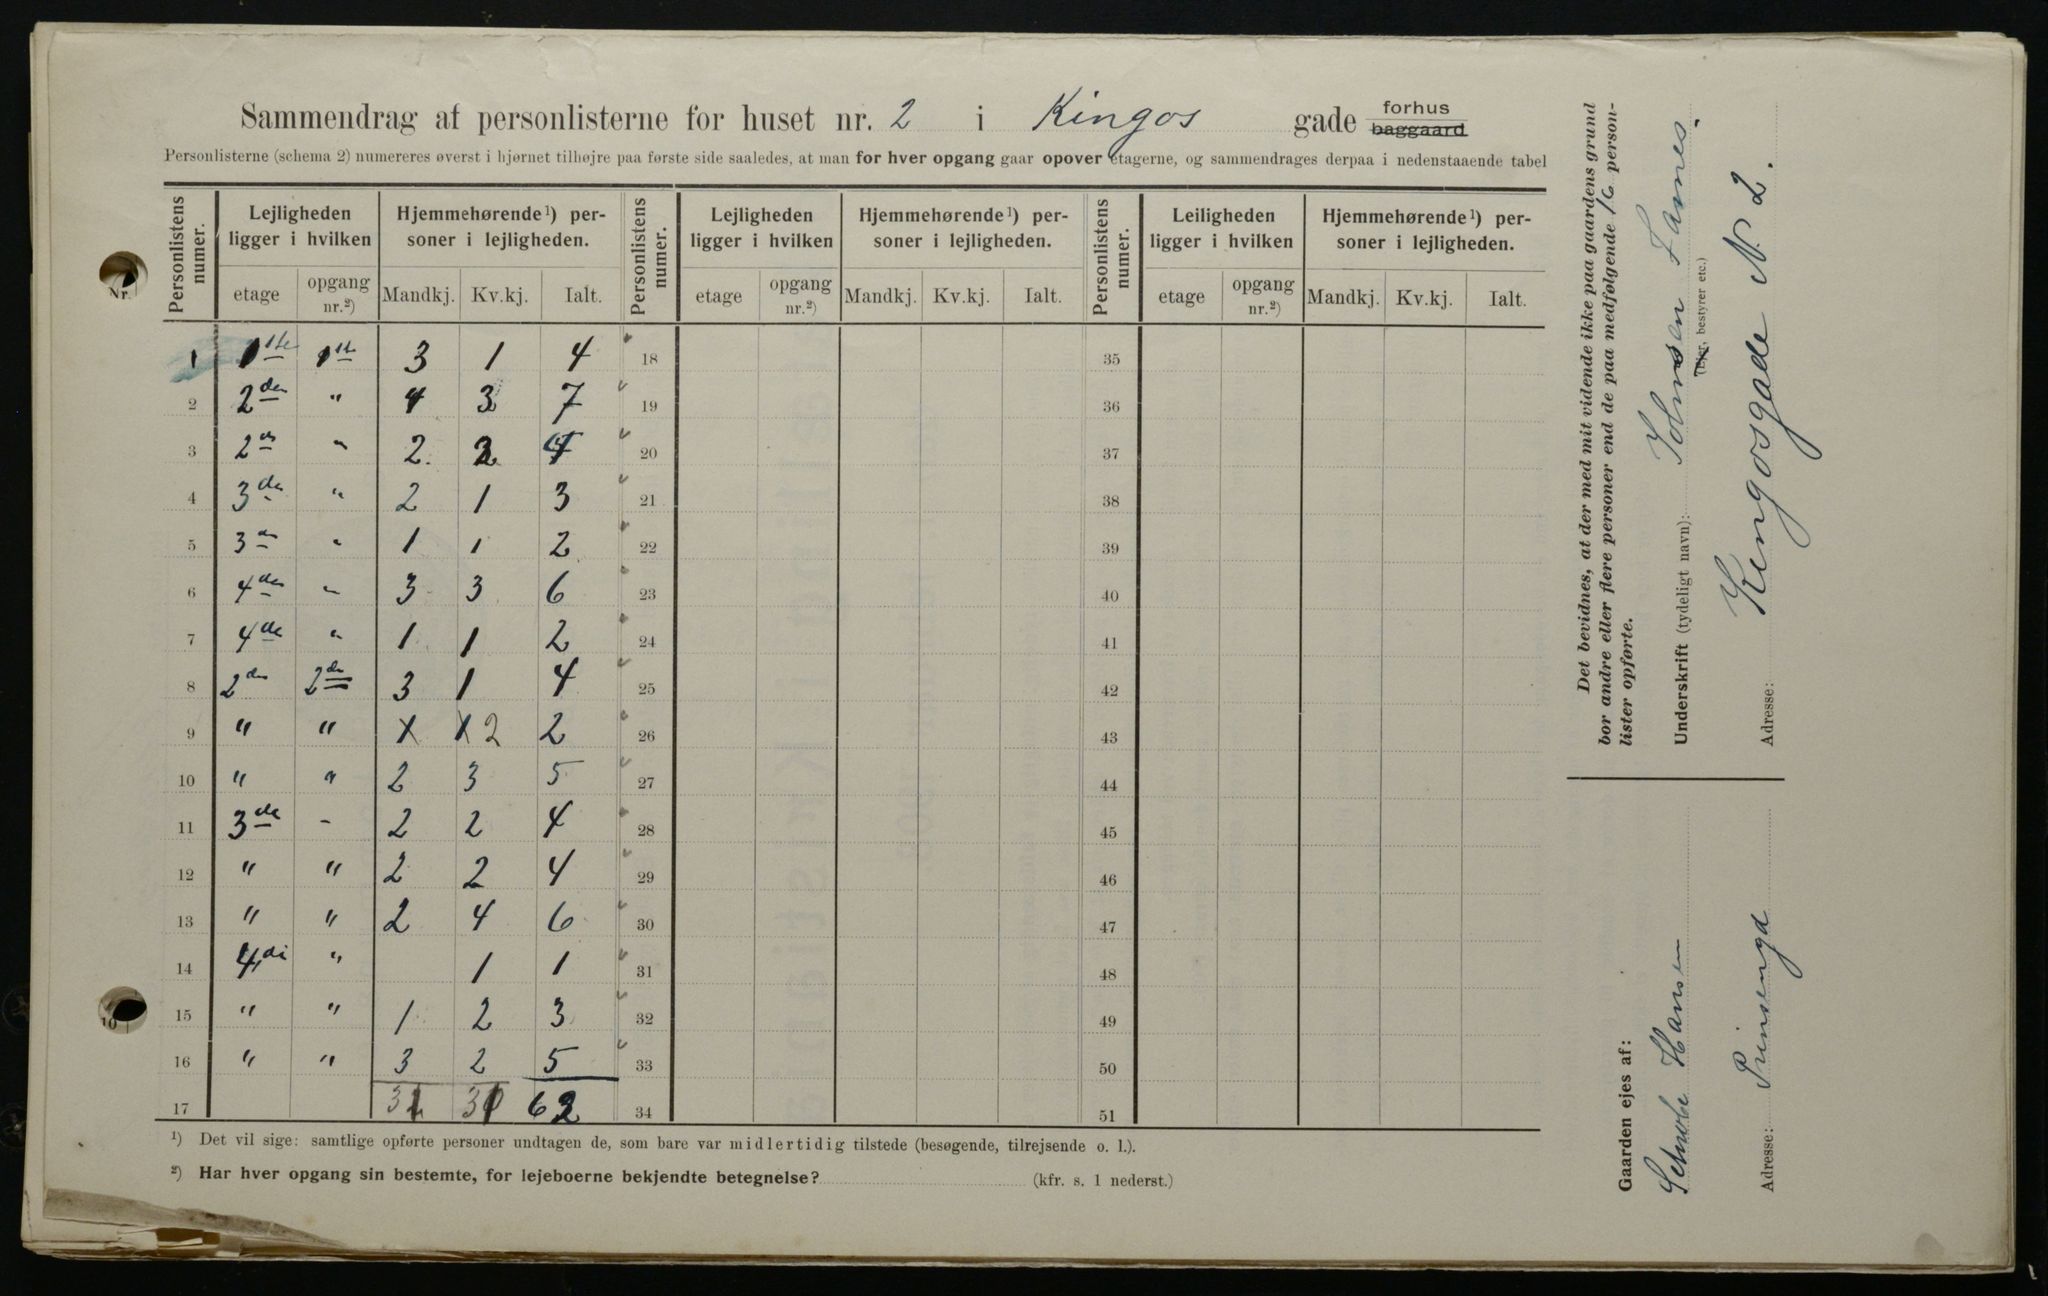 Sammendrag af personlisterne for huset nr. 2 i Kingos gade forhus baggaard
Personlisterne (schema 2) numereres øverst i hjørnet tilhøjre paa første side saaledes, at man for hver opgang gaar opover etagerne, og sammendrages derpaa i nedenstaaende tabel
Personlistens numer. Lejligheden ligger i hvilken Hjemmehørende¹) personer i lejligheden. Personlistens numer. Lejligheden ligger i hvilken Hjemmehørende¹) personer i lejligheden. Personlistens numer. Leiligheden ligger i hvilken Hjemmehørende¹) personer i lejligheden.
etage opgang nr.²) Mandkj. Kv.kj. Ialt. etage opgang nr.²) Mandkj. Kv.kj. Ialt. etage opgang nr.²) Mandkj. Kv.kj. Ialt.
1 1ste 1ste 3 1 4 18 35
2 2den " 4 3 7 19 36
3 2den " 2 2 4 20 37
4 3den " 2 1 3 21 38
5 3den " 1 1 2 22 39
6 4den " 3 3 6 23 40
7 4de " 1 1 2 24 41
8 2den 2den 3 1 4 25 42
9 " " x x 2 2 26 43
10 " " 2 3 5 27 44
11 3de " 2 2 4 28 45
12 " " 2 2 4 29 46
13 " " 2 4 6 30 47
14 4de " 1 1 31 48
15 " " 1 2 3 32 49
16 " " 3 2 5 33 50
17 62 34 51
¹) Det vil sige: samtlige opførte personer undtagen de, som bare var midlertidig tilstede (besøgende, tilrejsende o. l.).
²) Har hver opgang sin bestemte, for lejeboerne bekjendte betegnelse? (kfr. s. 1 nederst.)
Det bevidnes, at der med mit vidende ikke paa gaardens grund
bor andre eller flere personer end de paa medfølgende 16 person-
lister opførte.
Underskrift (tydeligt navn):
(Ejer, bestyrer etc.)
Adresse: Kingosgade N. 2.
Gaarden ejes af:
Hansen
Adresse: Prinsengd
Nr.